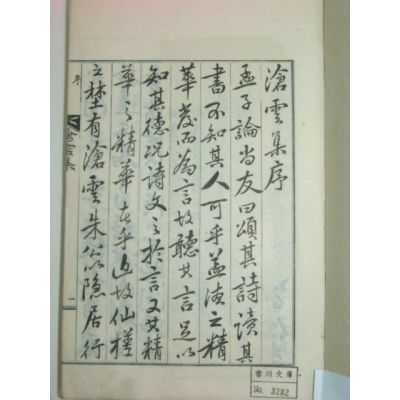 滄雲集序
孟子論尚友曰頌其詩讀其
書不知其人可乎蓋德之精
華發而為言故聽其言足以
知其德況詩文之於言又其精
華之精華者乎近故仙槎
之埜有滄雲朱公隱居行
序
滄雲集
一
川文庫
No. 3282